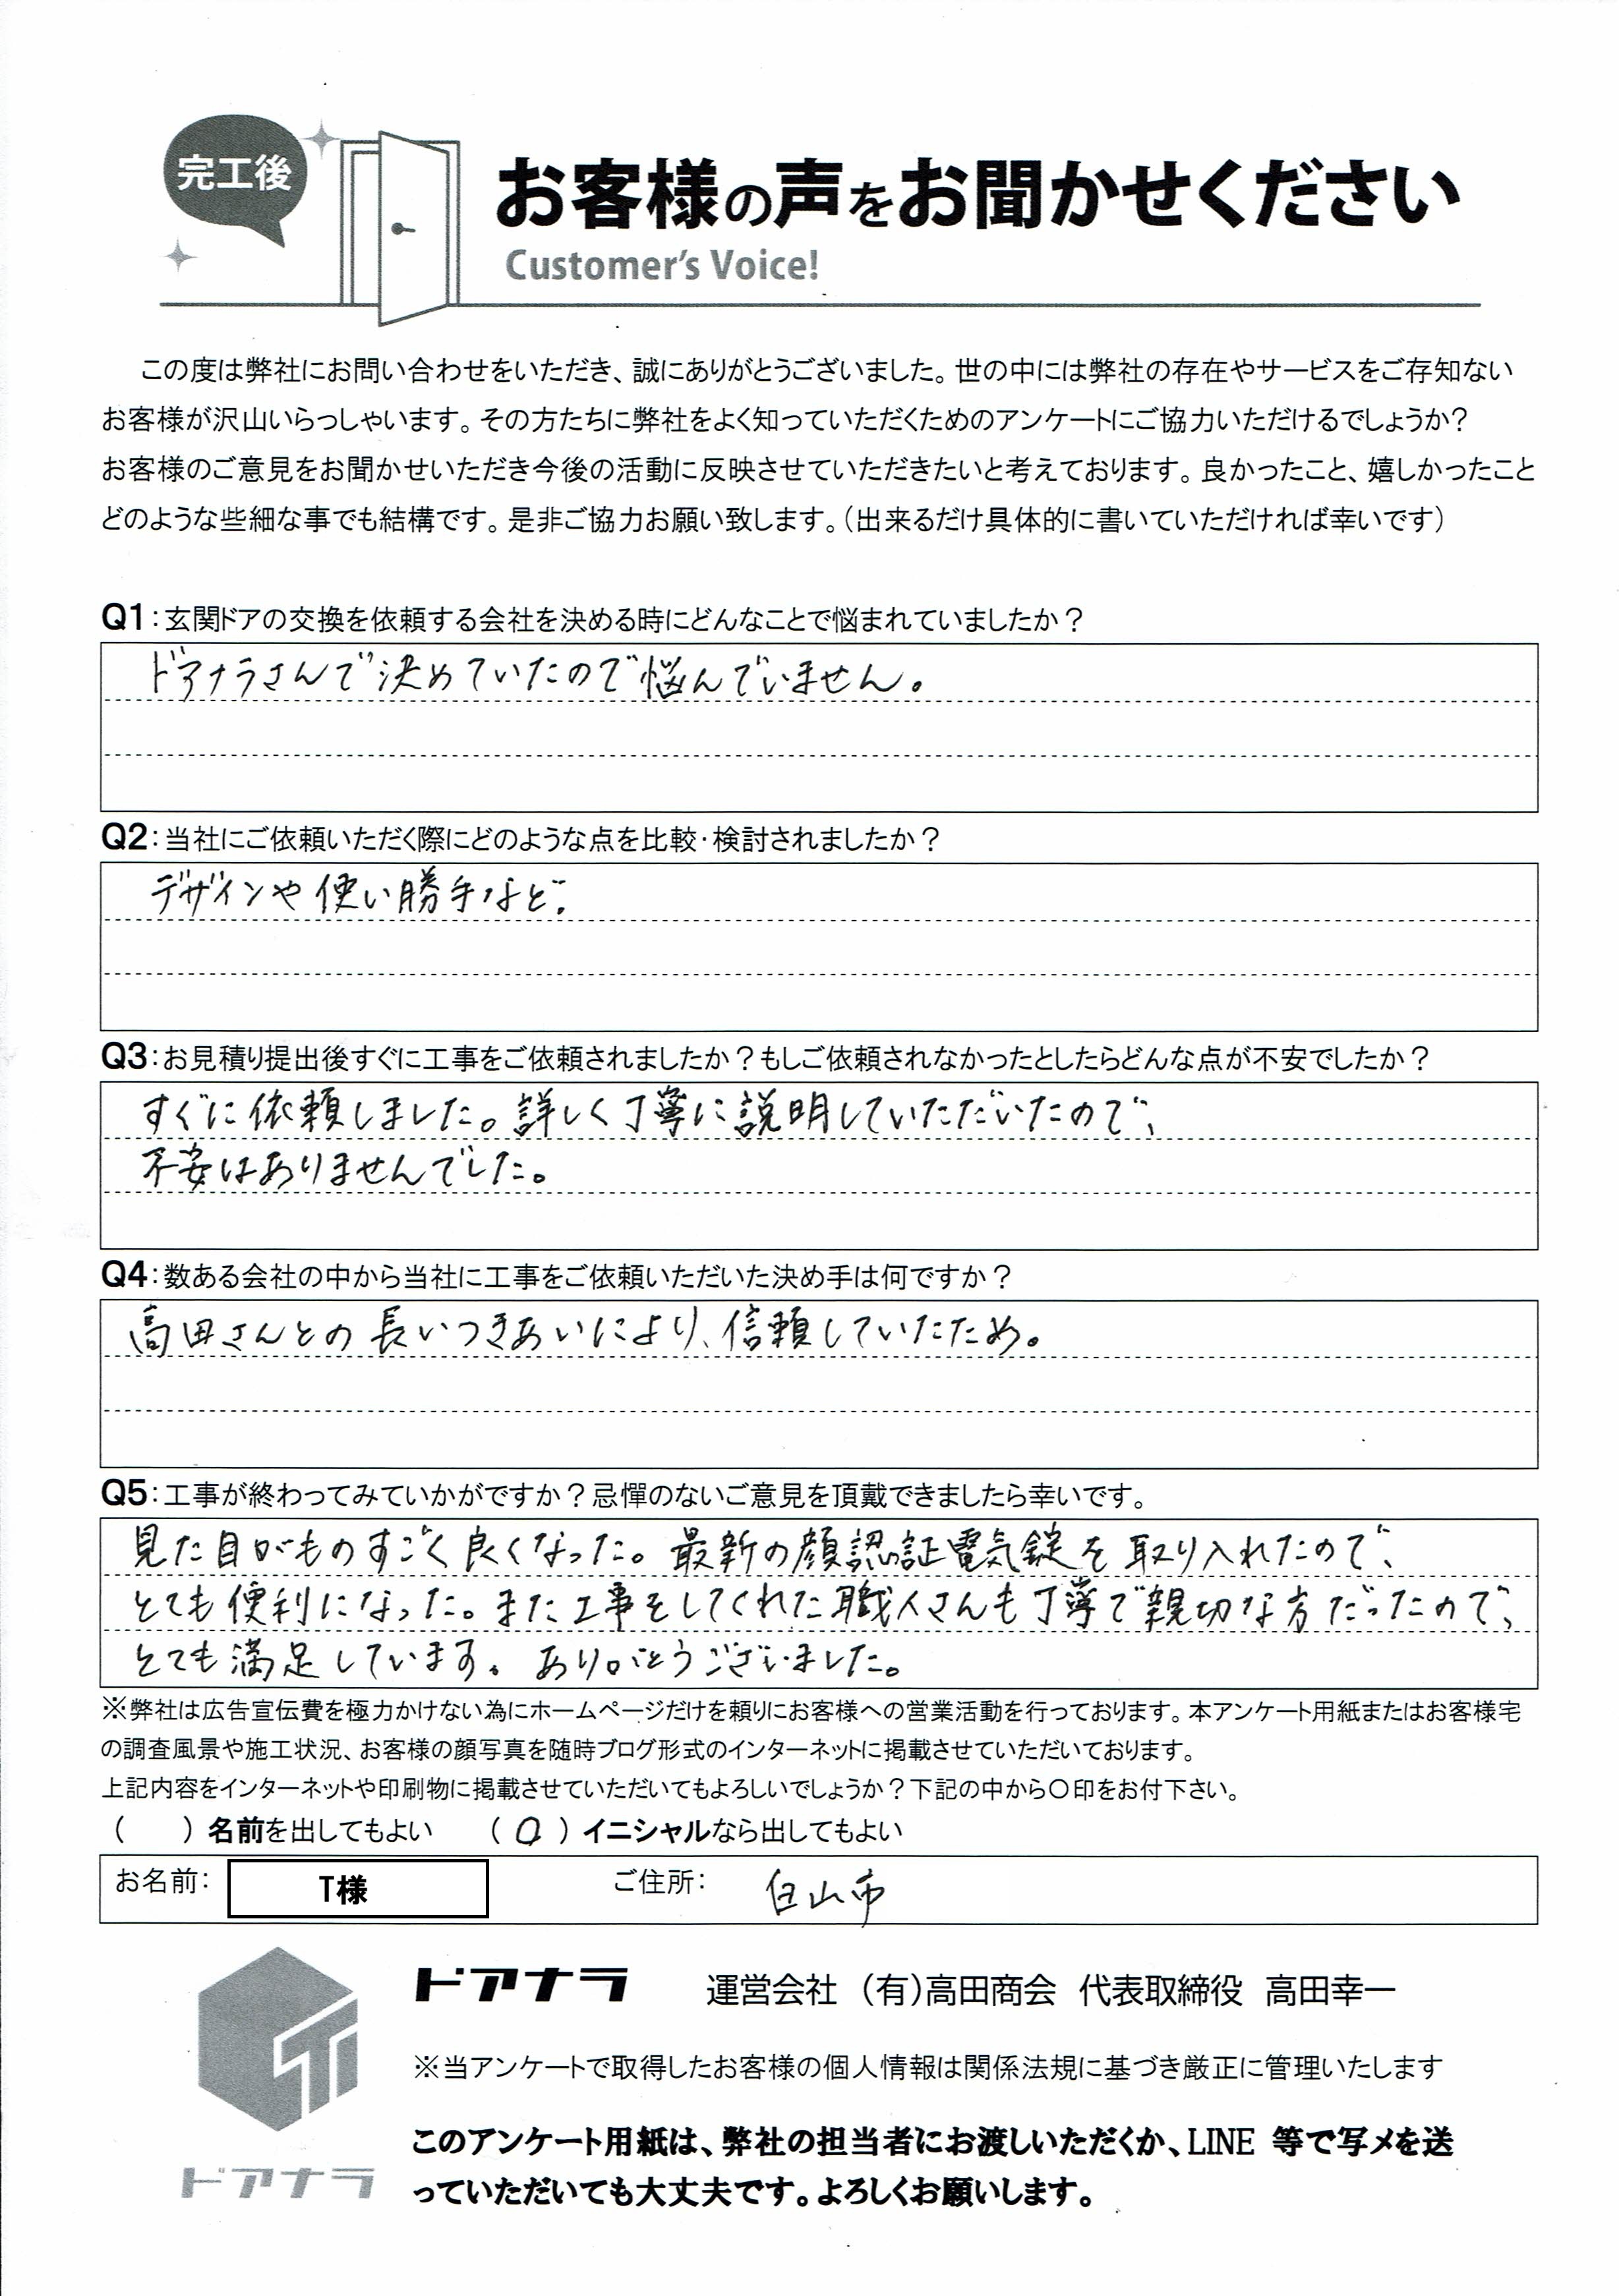 完工後
お客様の声をお聞かせください
Customer's Voice!
この度は弊社にお問い合わせをいただき、誠にありがとうございました。世の中には弊社の存在やサービスをご存知ない
お客様が沢山いらっしゃいます。その方たちに弊社をよく知っていただくためのアンケートにご協力いただけるでしょうか？
お客様のご意見をお聞かせいただき今後の活動に反映させていただきたいと考えております。良かったこと、嬉しかったこと
どのような些細な事でも結構です。是非ご協力お願い致します。（出来るだけ具体的に書いていただければ幸いです）
Q1：玄関ドアの交換を依頼する会社を決める時にどんなことで悩まれていましたか？
ドアナラさんで決めていたので悩んでいません。
Q2：当社にご依頼いただく際にどのような点を比較・検討されましたか？
デザインや使い勝手など。
Q3：お見積り提出後すぐに工事をご依頼されましたか？もしご依頼されなかったとしたらどんな点が不安でしたか？
すぐに依頼しました。詳しく丁寧に説明していただいたので、
不安はありませんでした。
Q4：数ある会社の中から当社に工事をご依頼いただいた決め手は何ですか？
高田さんとの長いつきあいにより、信頼していたため。
Q5：工事が終わってみていかがですか？忌憚のないご意見を頂戴できましたら幸いです。
見た目がものすごく良くなった。最新の顔認証電気錠を取り入れたので、
とても便利になった。また工事をしてくれた職人さんも丁寧で親切な方だったので、
とても満足しています。ありがとうございました。
※弊社は広告宣伝費を極力かけない為にホームページだけを頼りにお客様への営業活動を行っております。本アンケート用紙またはお客様宅
の調査風景や施工状況、お客様の顔写真を随時ブログ形式のインターネットに掲載させていただいております。
上記内容をインターネットや印刷物に掲載させていただいてもよろしいでしょうか？下記の中から〇印をお付下さい。
（　　）名前を出してもよい　（〇）イニシャルなら出してもよい
お名前：　T様　ご住所：　白山市
ドアナラ　運営会社　（有）高田商会　代表取締役　高田幸一
※当アンケートで取得したお客様の個人情報は関係法規に基づき厳正に管理いたします
このアンケート用紙は、弊社の担当者にお渡しいただくか、LINE 等で写メを送
っていただいても大丈夫です。よろしくお願いします。
ドアナラ